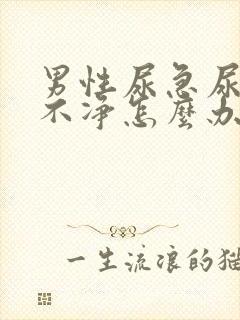 男性尿急尿
不净怎麼办
一生流浪的猫